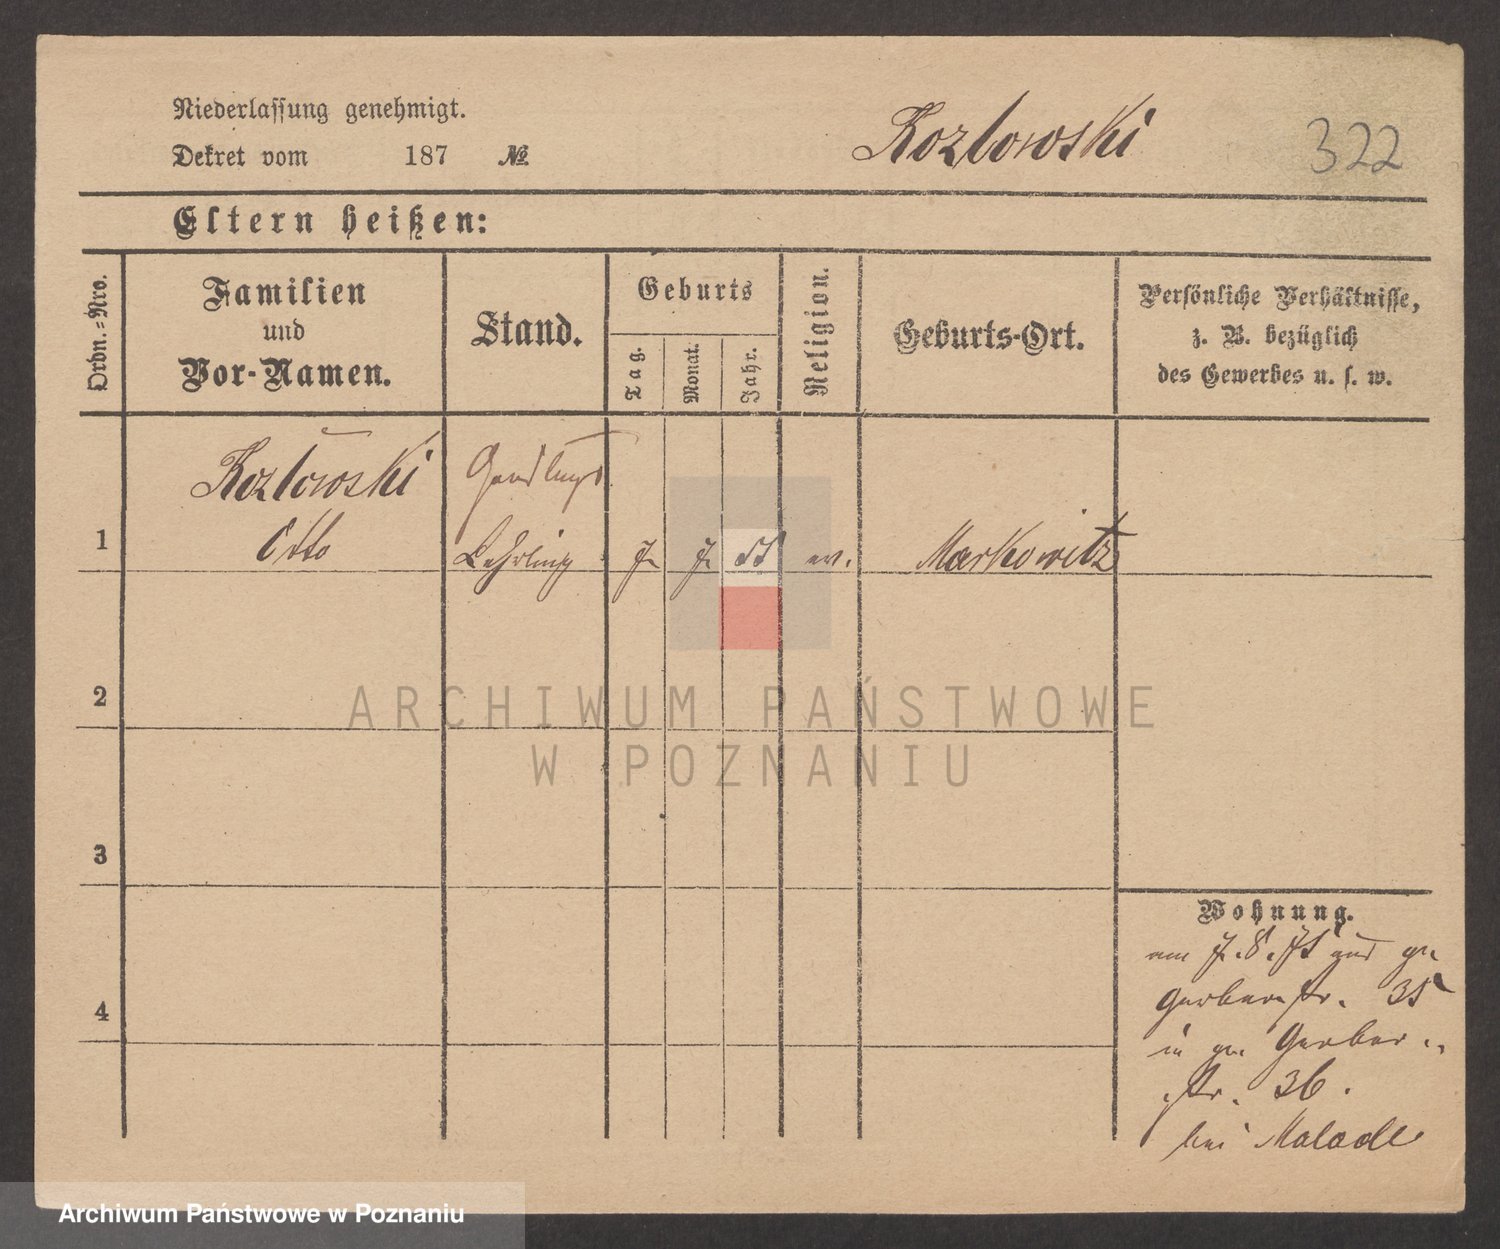 Niederlassung genehmigt.
Dekret vom 187 №
Kozlowski
322
Eltern heißen:
Ordn.=Nro.
Familien
und
Vor-Namen.
Stand.
Geburts
Tag.
Monat.
Jahr.
Religion.
Geburts-Ort.
Persönliche Verhältnisse,
z. B. bezüglich
des Gewerbes u. s. w.
Kozlowski
1 Otto Lehrling 7 7 55 ev. Markowitz
2
3
4
Wohnung.
am 7.8.71 aus gr.
Gerberstr. 35
in gr. Gerber
str. 36.
bei Malade
ARCHIWUM PAŃSTWOWE
W POZNANIU
Archiwum Państwowe w Poznaniu